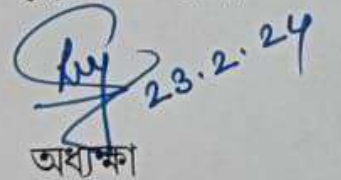 23.2.24
অধ্যক্ষা